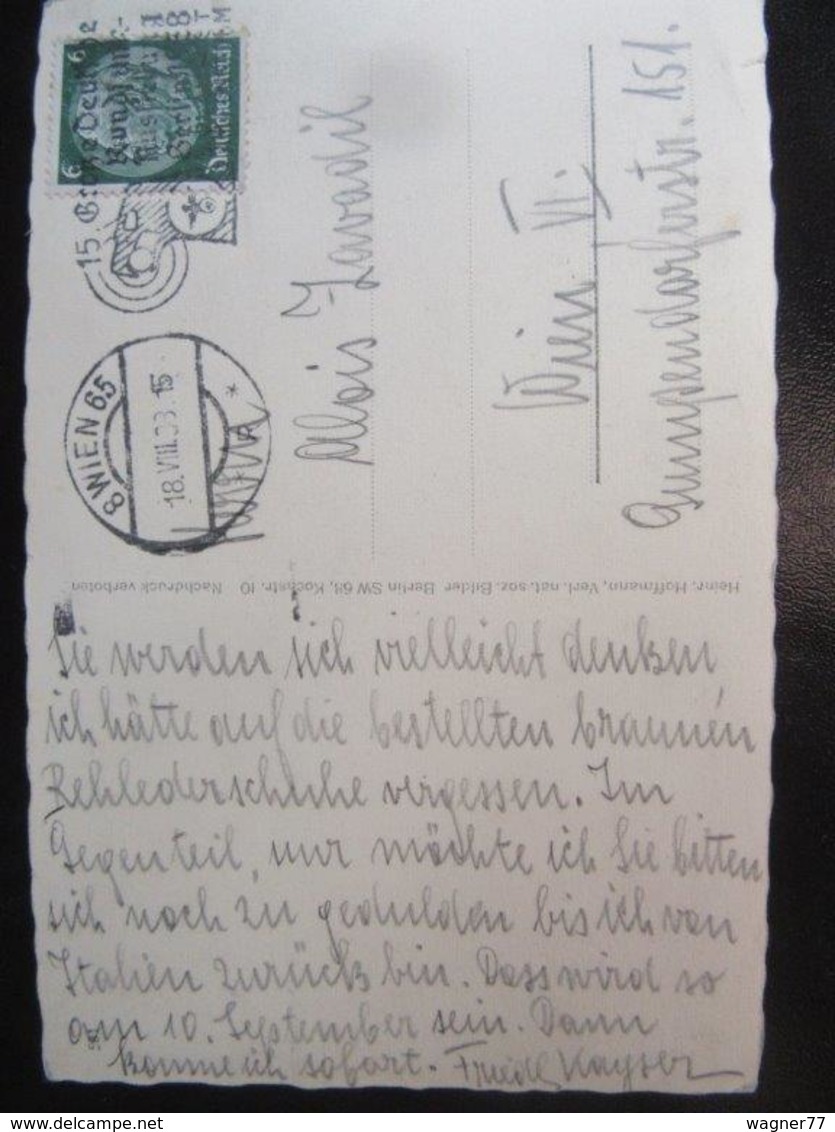 15. Große Deutsche
Rundfunk-
Ausstellung
Berlin
6
6
Deutsches Reich
8 WIEN 65
18.VIII.38.15
*
Alois Zavadil
Wien VI.
Gumpendorferstr. 151.
Heinr. Hoffmann, Verl. nat. soz. Bilder Berlin SW 68, Kochstr. 10 Nachdruck verboten
Sie werden sich vielleicht denken
ich hätte auf die bestellten braunen
Rehlederschuhe vergessen. Im
Gegenteil, nur möchte ich Sie bitten
sich noch zu gedulden bis ich von
Italien zurück bin. Dass wird so
am 10. September sein. Dann
komme ich sofort. Friedl Kayser
wagner77